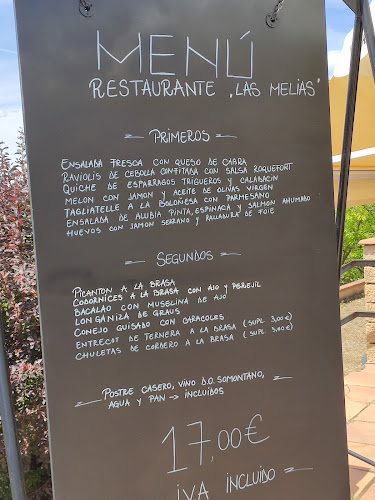 MENÚ
RESTAURANTE "LAS MELIAS"
PRIMEROS
ENSALADA FRESCA CON QUESO DE CABRA
RAVIOLIS DE CEBOLLA CONFITADA CON SALSA ROQUEFORT
QUICHE DE ESPARRAGOS TRIGUEROS Y CALABACIN
MELON CON JAMON Y ACEITE DE OLIVAS VIRGEN
TAGLIATELLE A LA BOLOÑESA CON PARMESANO
ENSALADA DE ALUBIA PINTA, ESPINACA Y SALMON AHUMADO
HUEVOS CON JAMON SERRANO Y RALLADURA DE FOIE
SEGUNDOS
PICANTON A LA BRASA
CODORNICES A LA BRASA CON AJO Y PEREJIL
BACALAO CON MUSELINA DE AJO
LONGANIZA DE GRAUS
CONEJO GUISADO CON CARACOLES
ENTRECOT DE TERNERA A LA BRASA (SUPL 3,00€)
CHULETAS DE CORDERO A LA BRASA (SUPL 3,00€)
POSTRE CASERO, VINO D.O. SOMONTANO,
AGUA Y PAN → INCLUIDOS
17,00€
IVA INCLUIDO